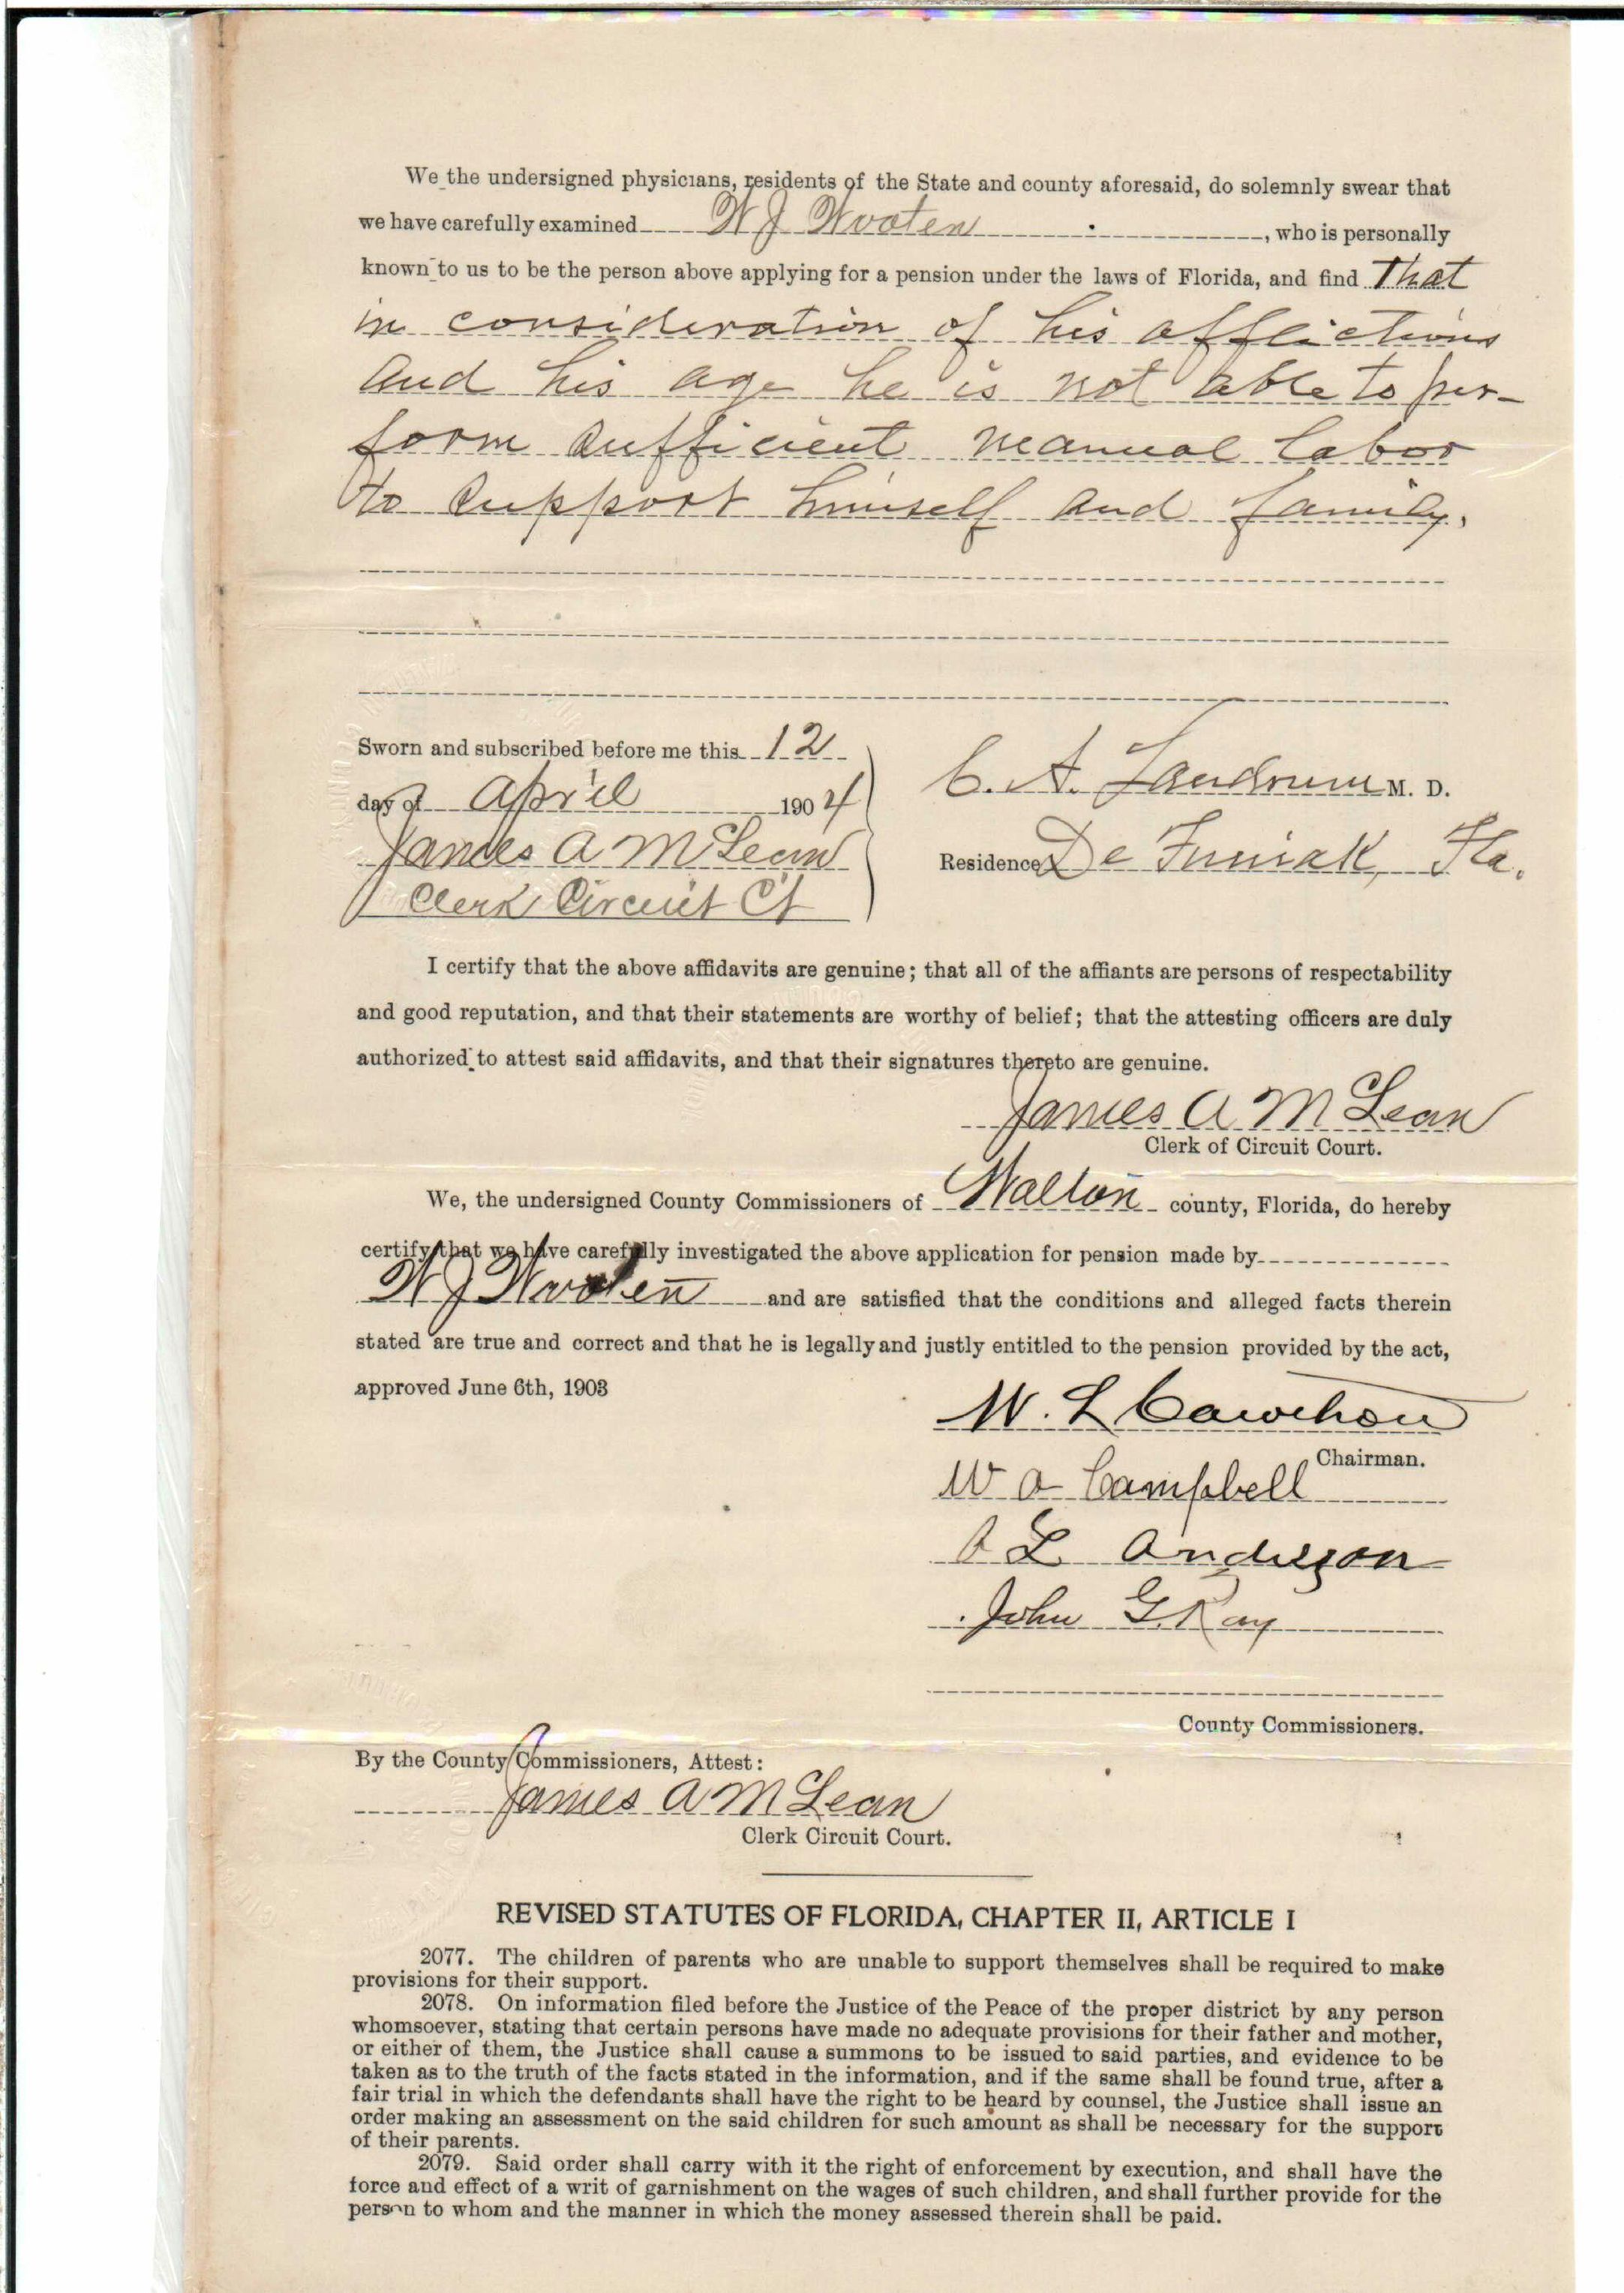 We the undersigned physicians, residents of the State and county aforesaid, do solemnly swear that
we have carefully examined W J Wooten, who is personally
known to us to be the person above applying for a pension under the laws of Florida, and find That
in consideration of his afflictions
and his age he is not able to per-
form sufficient manual labor
to support himself and family.
Sworn and subscribed before me this 12
day of April 1904
James A McLean
Clerk Circuit Ct
C. A. Landrum M. D.
Residence De Funiak, Fla.
I certify that the above affidavits are genuine; that all of the affiants are persons of respectability
and good reputation, and that their statements are worthy of belief; that the attesting officers are duly
authorized to attest said affidavits, and that their signatures thereto are genuine.
James A McLean
Clerk of Circuit Court.
We, the undersigned County Commissioners of Walton county, Florida, do hereby
certify that we have carefully investigated the above application for pension made by
W J Wooten and are satisfied that the conditions and alleged facts therein
stated are true and correct and that he is legally and justly entitled to the pension provided by the act,
approved June 6th, 1903
W. L Cawthon
Chairman.
W A Campbell
A L Anderson
John G. Ray
County Commissioners.
By the County Commissioners, Attest:
James A McLean
Clerk Circuit Court.
REVISED STATUTES OF FLORIDA, CHAPTER II, ARTICLE I
2077. The children of parents who are unable to support themselves shall be required to make
provisions for their support.
2078. On information filed before the Justice of the Peace of the proper district by any person
whomsoever, stating that certain persons have made no adequate provisions for their father and mother,
or either of them, the Justice shall cause a summons to be issued to said parties, and evidence to be
taken as to the truth of the facts stated in the information, and if the same shall be found true, after a
fair trial in which the defendants shall have the right to be heard by counsel, the Justice shall issue an
order making an assessment on the said children for such amount as shall be necessary for the support
of their parents.
2079. Said order shall carry with it the right of enforcement by execution, and shall have the
force and effect of a writ of garnishment on the wages of such children, and shall further provide for the
person to whom and the manner in which the money assessed therein shall be paid.